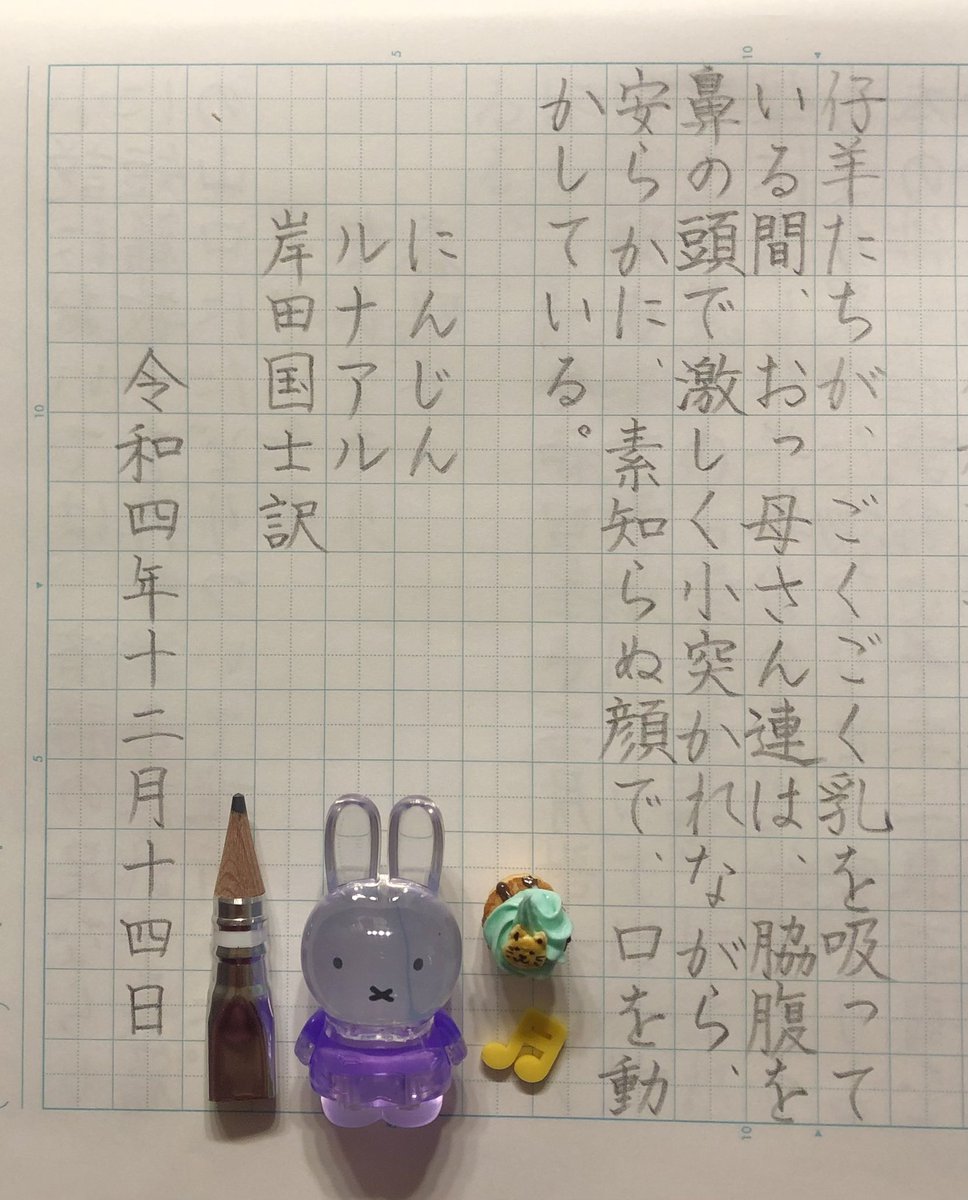 仔羊たちが、ごくごく乳を吸って
いる間、おっ母さん連は、脇腹を
鼻の頭で激しく小突かれながら、
安らかに、素知らぬ顔で、口を動
かしている。
にんじん
ルナアル
岸田国士訳
令和四年十二月十四日
5
10
10
5
10